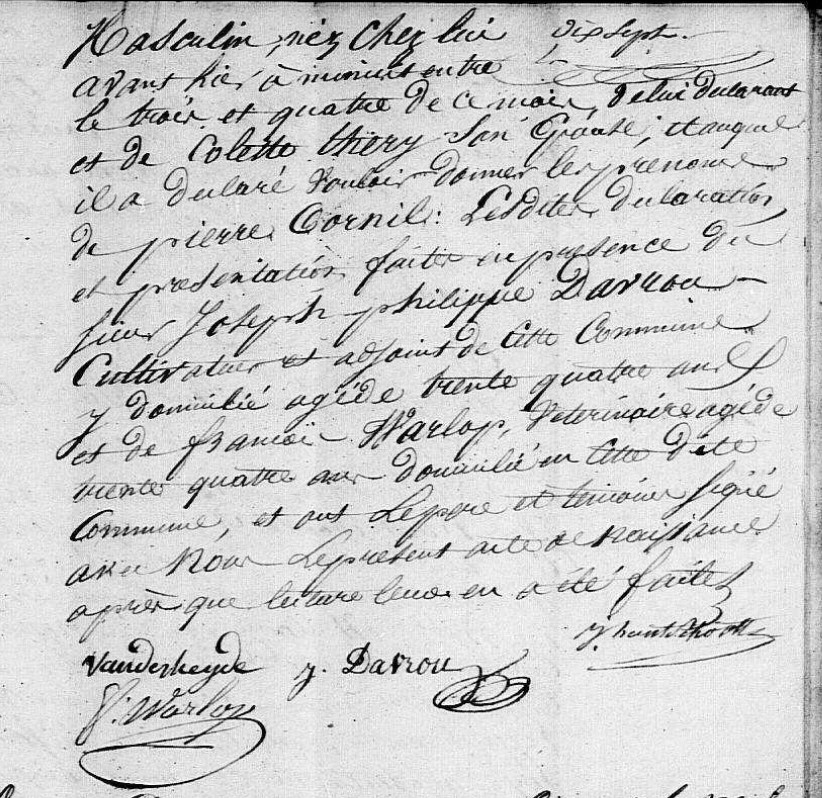 Masculin, néz chez lui dix sept.
avant hier à minuit entre
le trois et quatre de ce mois, de lui declarant
et de Colette thery son Epouse, et auquel
il a declaré vouloir donner les prenoms
de pierre Cornil: Lesdites declaration
et presentation faites en presence du
sieur Joseph philippe Davrou
Cultivateur et adjoint de cette Commune
y domicilié agé de trente quatre ans
et de françois Warlop, veterinaire agé de
trente quatre ans domicilié en cette dite
Commune, et ont Le pere et temoins signé
avec Nous Le present acte de naissance
après que lecture leur en a été faite
vanderheyde J. Davrou
f. Warlop